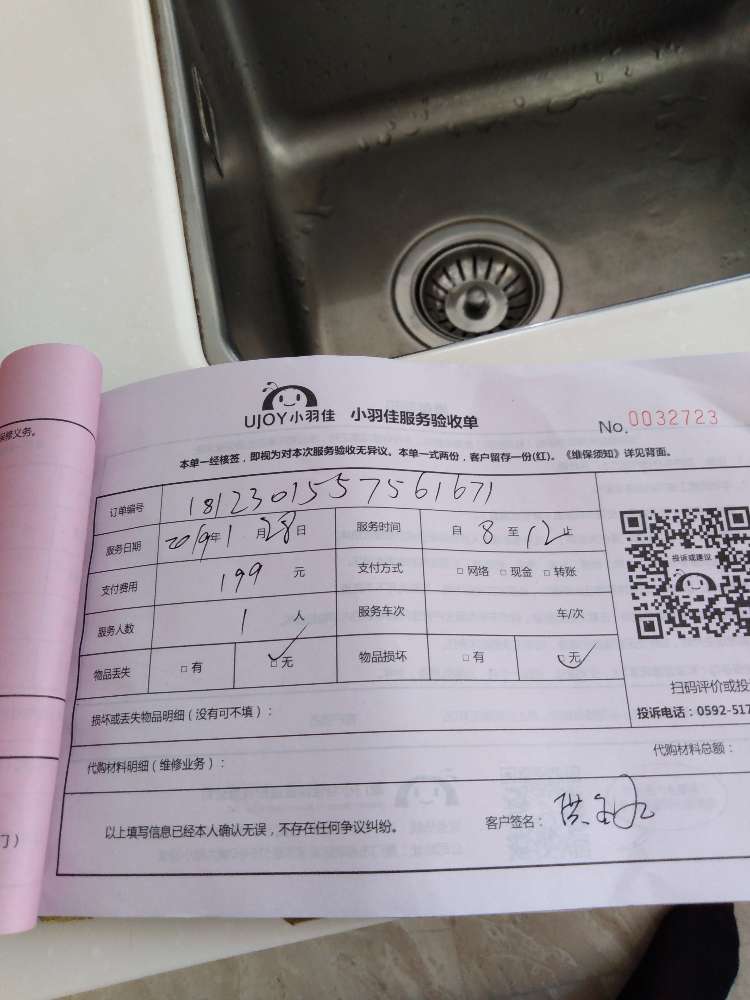 保修义务。
UJOY小羽佳 小羽佳服务验收单
No.0032723
本单一经核签,即视为对本次服务验收无异议。本单一式两份,客户留存一份(红)。《维保须知》详见背面。
订单编号 1812301557561671
服务日期 2019年1月28日 服务时间 自8至12止
支付费用 199元 支付方式 □网络 □现金 □转账
服务人数 1人 服务车次 车/次
物品丢失 □有 □无 物品损坏 □有 □无
投诉或建议
扫码评价或投
投诉电话:0592-517
损坏或丢失物品明细(没有可不填):
代购材料明细(维修业务): 代购材料总额:
以上填写信息已经本人确认无误,不存在任何争议纠纷。 客户签名: